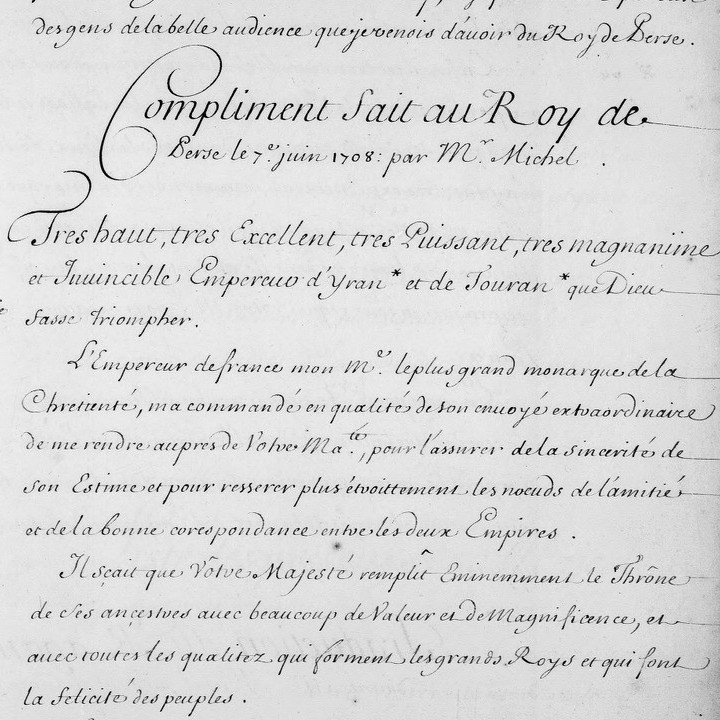 des gens de la belle audience que je venois d'avoir du Roy de Perse.
Compliment fait au Roy de
Perse le 7.e juin 1708: par Mr. Michel.
Tres haut, tres Excellent, tres Puissant, tres magnanime
et Invincible Empereur d'Yran* et de Touran* que Dieu
fasse triompher.
L'Empereur de france mon Me. le plus grand monarque de la
Chretienté, ma commandé en qualité de son envoyé extraordinaire
de me rendre aupres de Votre Ma.té, pour l'assurer de la sincerité de
son Estime et pour resserer plus étroittement les nœuds de l'amitié
et de la bonne corespondance entre les deux Empires.
Il sçait que Vôtre Majesté remplît Eminemment le Thrône
de ses ançestres avec beaucoup de Valeur et de Magnificence, et
avec toutes les qualitez qui forment les grands Roys et qui font
la felicité des peuples.